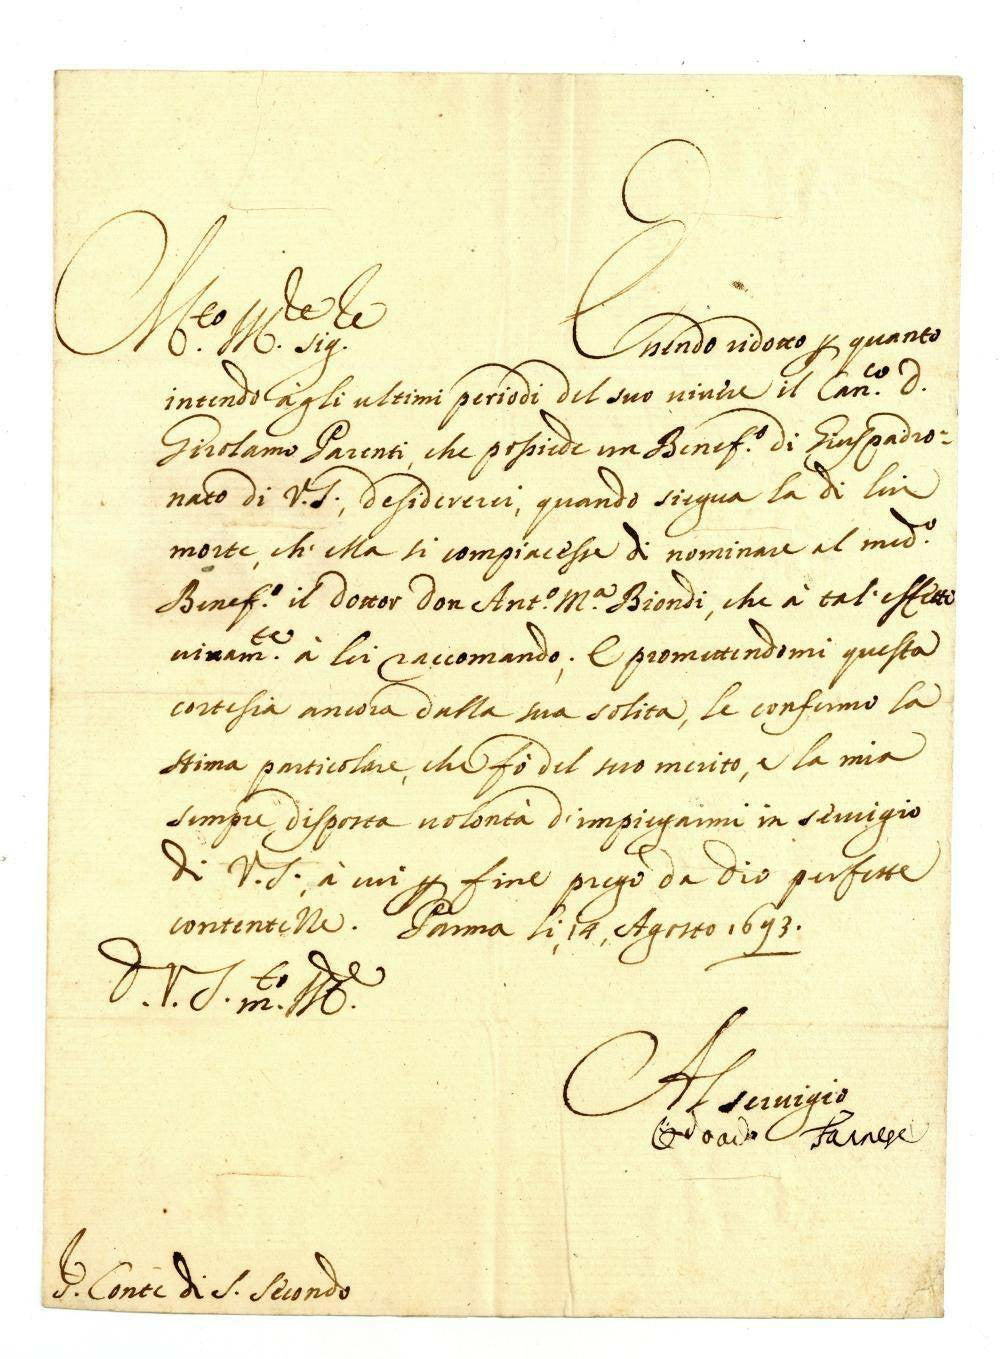 M.to Ill.re Sig.re
Essendo ridotto p quanto
intendo àgli ultimi periodi del suo vivere il Can.co D.
Girolamo Parenti, che possiede un Benef.o di Giuspadro=
nato di V.S., desidererei, quando siegua la di lui
morte, ch'ella si compiacesse di nominare al med.o
Benef.o il dottor don Ant.o M.a Biondi, che à tal'effetto
vivam.te à lei raccomando; E promettendomi questa
cortesia ancora dalla sua solita, le confermo la
stima particolare, che fò del suo merito, e la mia
sempre disposta volontà d'impiegarmi in servigio
di V.S., à cui p fine prego da Dio perfette
contentezze. Parma li, 14, Agosto .1693.
D.V.S. m.to Ill.re
Al servigio
Odoardo Farnese
S. Conte di S. Secondo